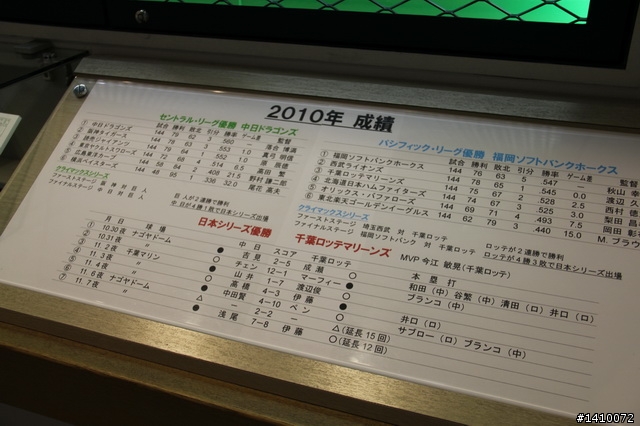 2010年 成績
セントラル・リーグ優勝 中日ドラゴンズ
試合 勝利 敗北 引分 勝率 ゲーム差 監督
① 中日ドラゴンズ 144 79 62 3 .560 落合 博満
② 阪神タイガース 144 78 63 3 真弓 明信
③ 読売ジャイアンツ 144 79 64 1 原 辰徳
④ 東京ヤクルトスワローズ 144 72 68 4
⑤ 広島東洋カープ 144 58 84 2 .408 21.5 野村 謙二郎
⑥ 横浜ベイスターズ 144 48 95 1 .336 32.0 尾花 高夫
クライマックスシリーズ
ファーストステージ 阪神 対 巨人 巨人が2連勝で勝利
ファイナルステージ 中日 対 巨人 中日が4勝1敗で日本シリーズ出場
パシフィック・リーグ優勝 福岡ソフトバンクホークス
試合 勝利 敗北 引分 勝率 ゲーム差 監督
① 福岡ソフトバンクホークス 144 76 63 5 .547 — 秋山
② 西武ライオンズ 144 78 65 1 .545 0.0 渡辺 久
③ 千葉ロッテマリーンズ 144 75 67 2 .528 2.5 西村 徳
④ 北海道日本ハムファイターズ 144 74 67 3 .525 3.0 梨田 昌
⑤ オリックス・バファローズ 144 69 71 4 .493 7.5 岡田 彰
⑥ 東北楽天ゴールデンイーグルス 144 62 79 3 .440 15.0 M.ブラウ
クライマックスシリーズ
ファーストステージ 埼玉西武 対 千葉ロッテ ロッテが2連勝で勝利
ファイナルステージ 福岡ソフトバンク 対 千葉ロッテ ロッテが4勝3敗で日本シリーズ出場
日本シリーズ優勝 千葉ロッテマリーンズ MVP 今江 敏晃(千葉ロッテ)
月日 球場 中日 スコア 千葉ロッテ 本塁打
① 10.30夜 ナゴヤドーム ● 吉見 2-5 成瀬 ○ 和田(中) 谷繁(中) 清田(ロ) 井口(ロ)
② 10.31夜 〃 ○ チェン 12-1 マーフィー ● ブランコ(中)
③ 11.2夜 千葉マリン ● 山井 1-7 渡辺俊 ○
④ 11.3夜 〃 ○ 高橋 4-3 伊藤 ● 井口(ロ)
⑤ 11.4夜 〃 ● 中田賢 4-10 ペン ○ サブロー(ロ) ブランコ(中)
⑥ 11.6夜 ナゴヤドーム △ — 2-2 — △(延長15回)
⑦ 11.7夜 〃 ● 浅尾 7-8 伊藤 ○(延長12回)
#1410072